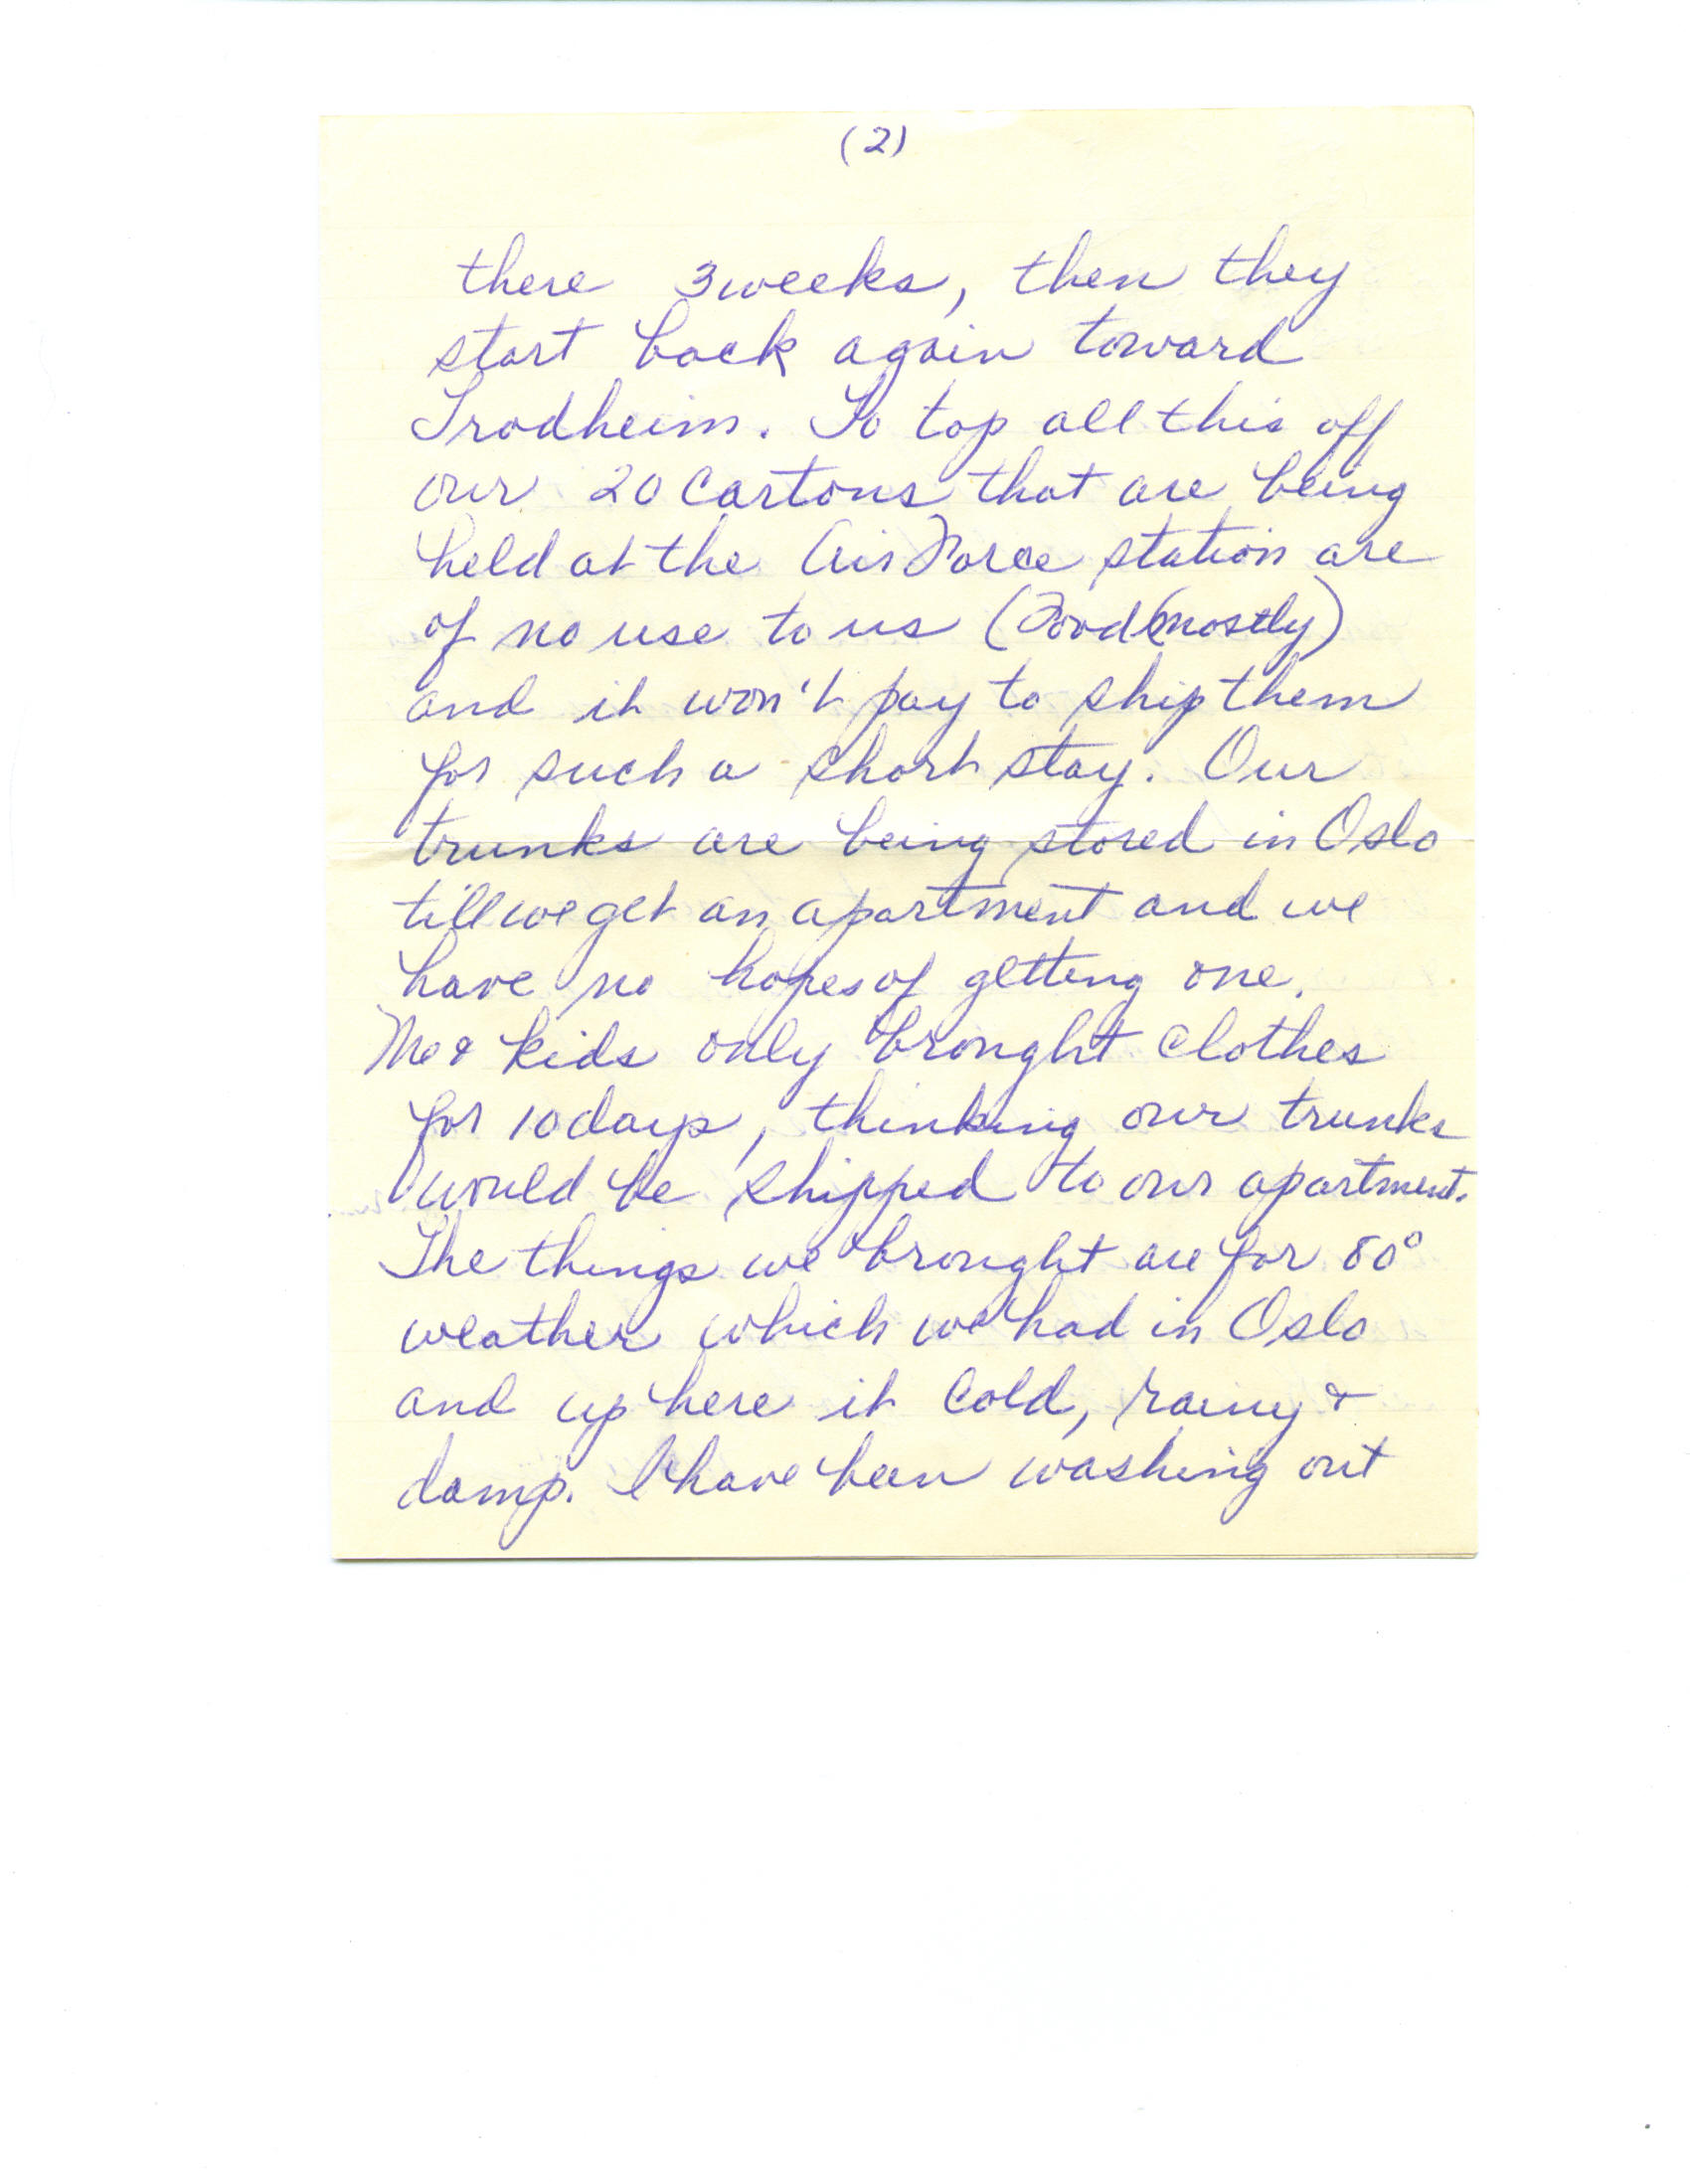 (2)
there 3 weeks, then they
start back again toward
Trodheim. To top all this off
our 20 cartons that are being
held at the Air Force station are
of no use to us (Food (mostly)
and it won't pay to ship them
for such a short stay. Our
trunks are being stored in Oslo
till we get an apartment and we
have no hopes of getting one.
Me & kids only brought clothes
for 10 days, thinking our trunks
would be shipped to our apartment.
The things we brought are for 80°
weather which we had in Oslo
and up here it cold, rainy &
damp. I have been washing out